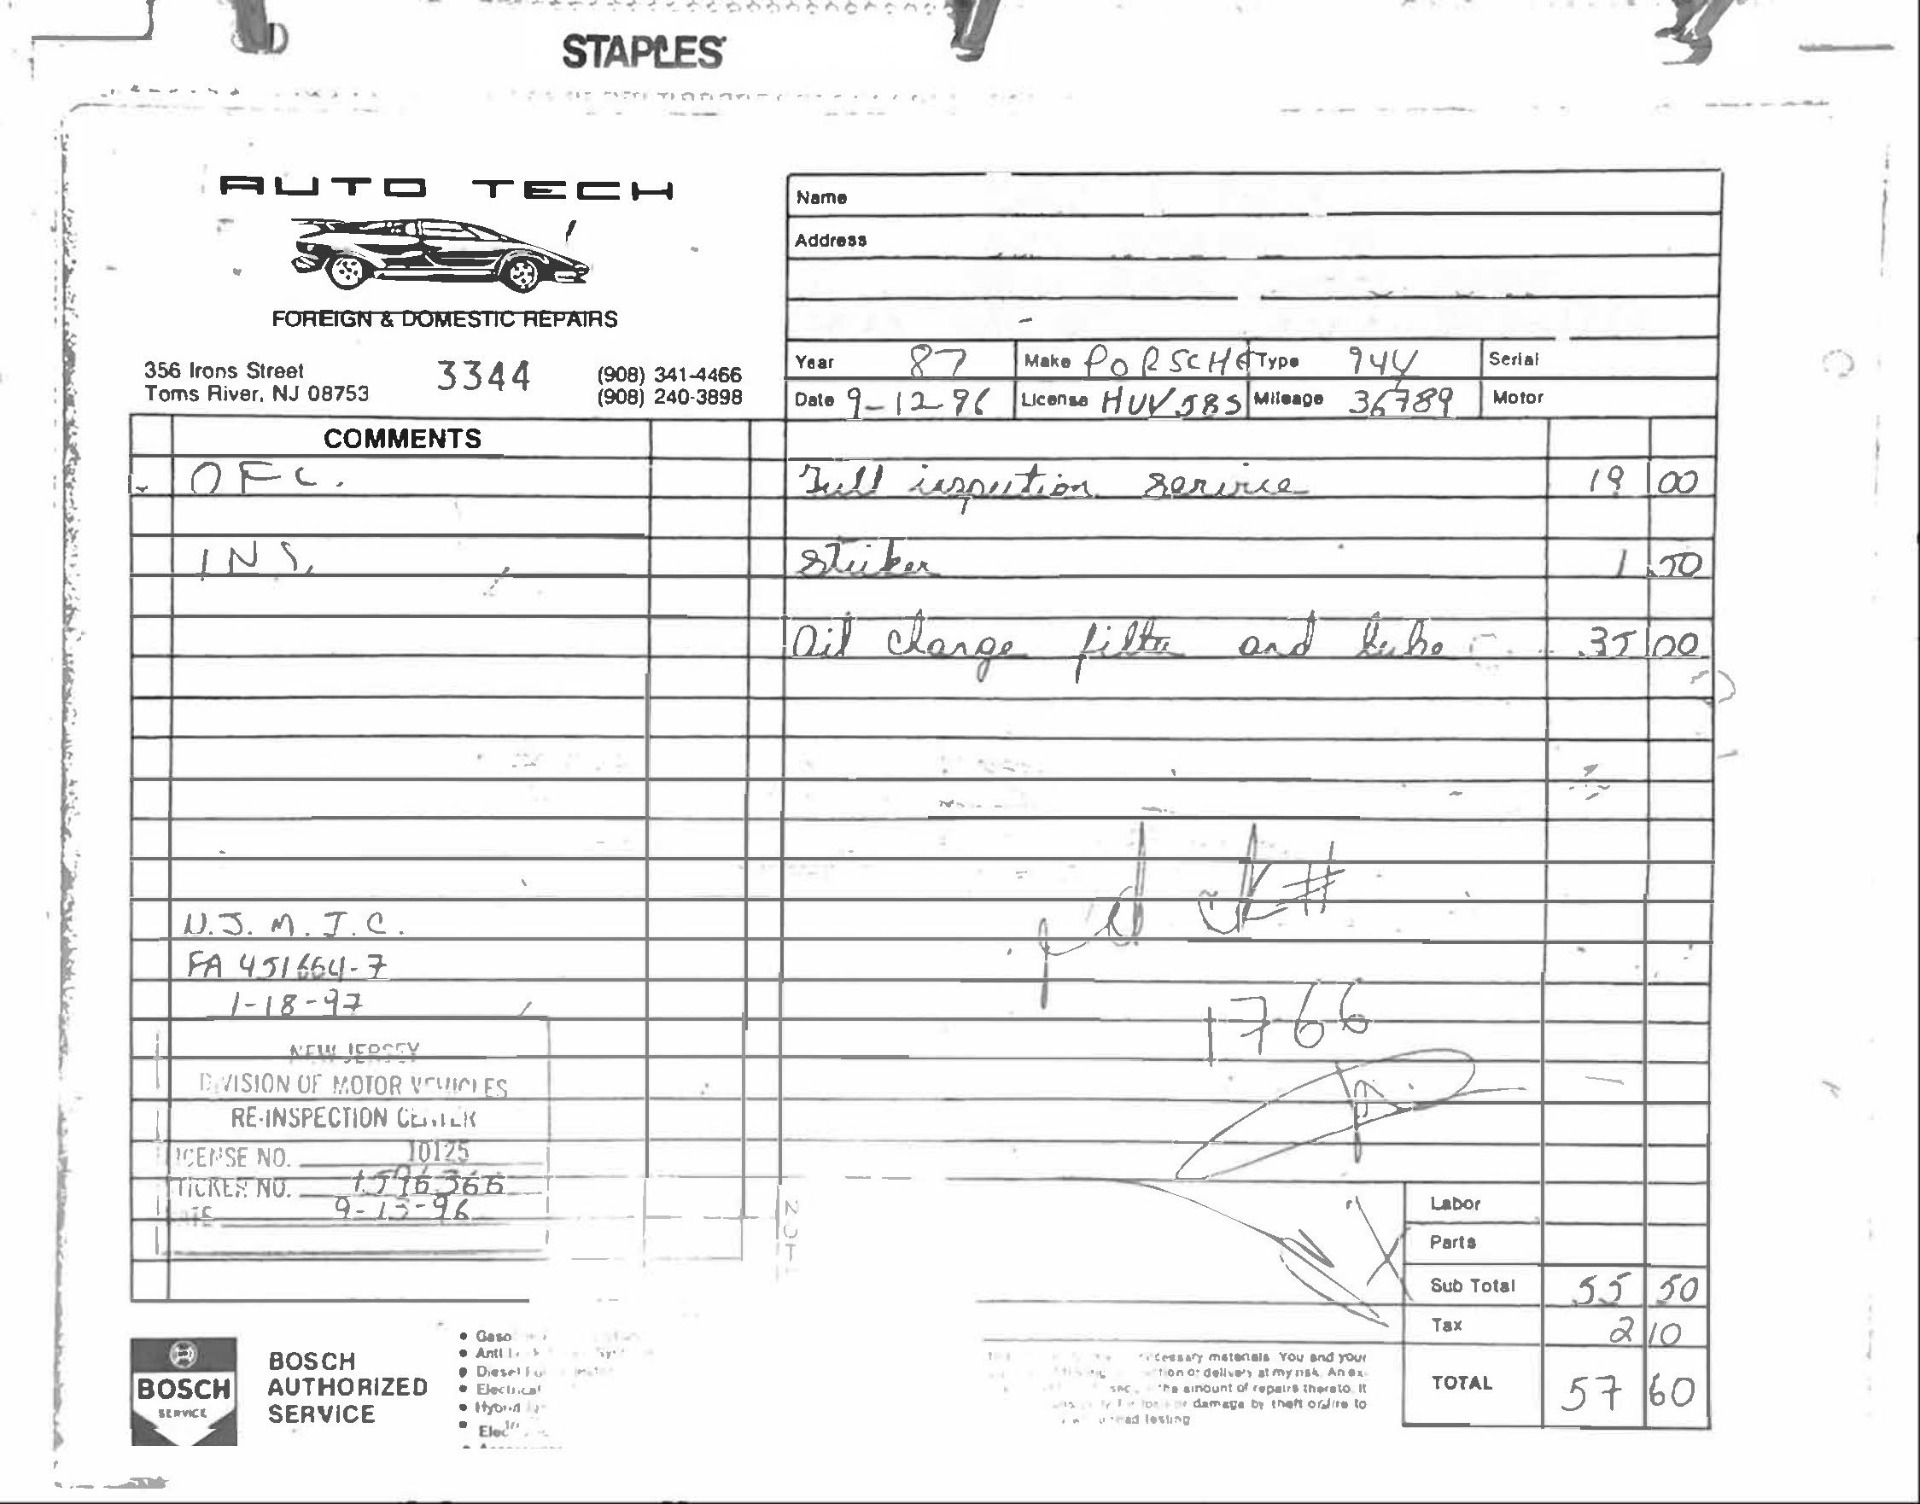 STAPLES
AUTO TECH
FOREIGN & DOMESTIC REPAIRS
356 Irons Street
Toms River, NJ 08753
3344
(908) 341-4466
(908) 240-3898
Name
Address
Year 87 Make PORSCHE Type 944 Serial
Date 9-12-96 License HUV58S Mileage 36789 Motor
COMMENTS
OFC.
Full inspection service 19 00
INS.
Sticker 1 50
Oil change filter and lube 35 00
pd CK#
1766
N.J.M.I.C.
FA 451664-7
1-18-97
NEW JERSEY
DIVISION OF MOTOR VEHICLES
RE-INSPECTION CENTER
ICENSE NO. 10125
TICKER NO. 1596366
9-13-96
Labor
Parts
Sub Total 55 50
Tax 2 10
TOTAL 57 60
BOSCH
SERVICE
BOSCH
AUTHORIZED
SERVICE
• Gaso
• Anti
• Diesel
• Electrical
• Hybrid
• Elec
necessary materials. You and your
or delivery at my risk. An ex-
the amount of repairs thereto. It
damage by theft or fire to
testing